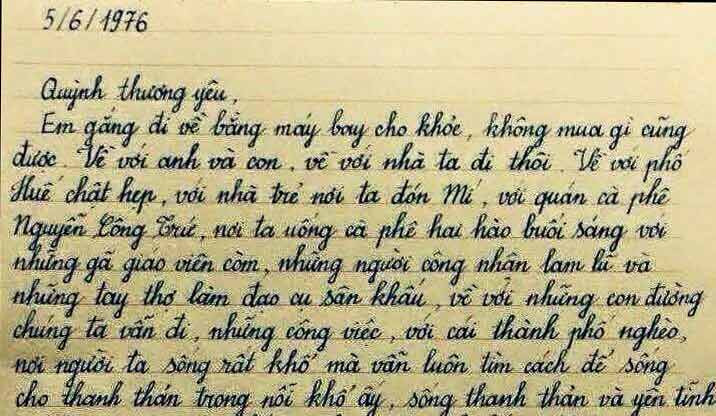 5/6/1976
Quỳnh thương yêu,
Em gắng đi về bằng máy bay cho khỏe, không mua gì cũng
được. Về với anh và con, về với nhà ta đi thôi. Về với phố
Huế chật hẹp, với nhà trẻ nơi ta đón Mí, với quán cà phê
Nguyễn Công Trứ, nơi ta uống cà phê hai hào buổi sáng với
những gã giáo viên còm, những người công nhân lam lũ và
những tay thợ làm đạo cụ sân khấu, về với những con đường
chúng ta vẫn đi, những công việc, với cái thành phố nghèo,
nơi người ta sống rất khổ mà vẫn luôn tìm cách để sống
cho thanh thản trong nỗi khổ ấy, sống thanh thản và yên tĩnh